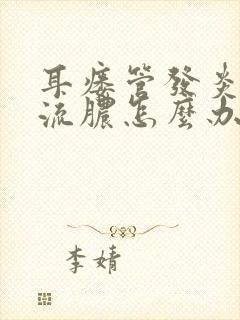 耳瘻管發炎
流膿怎麼办
李婧